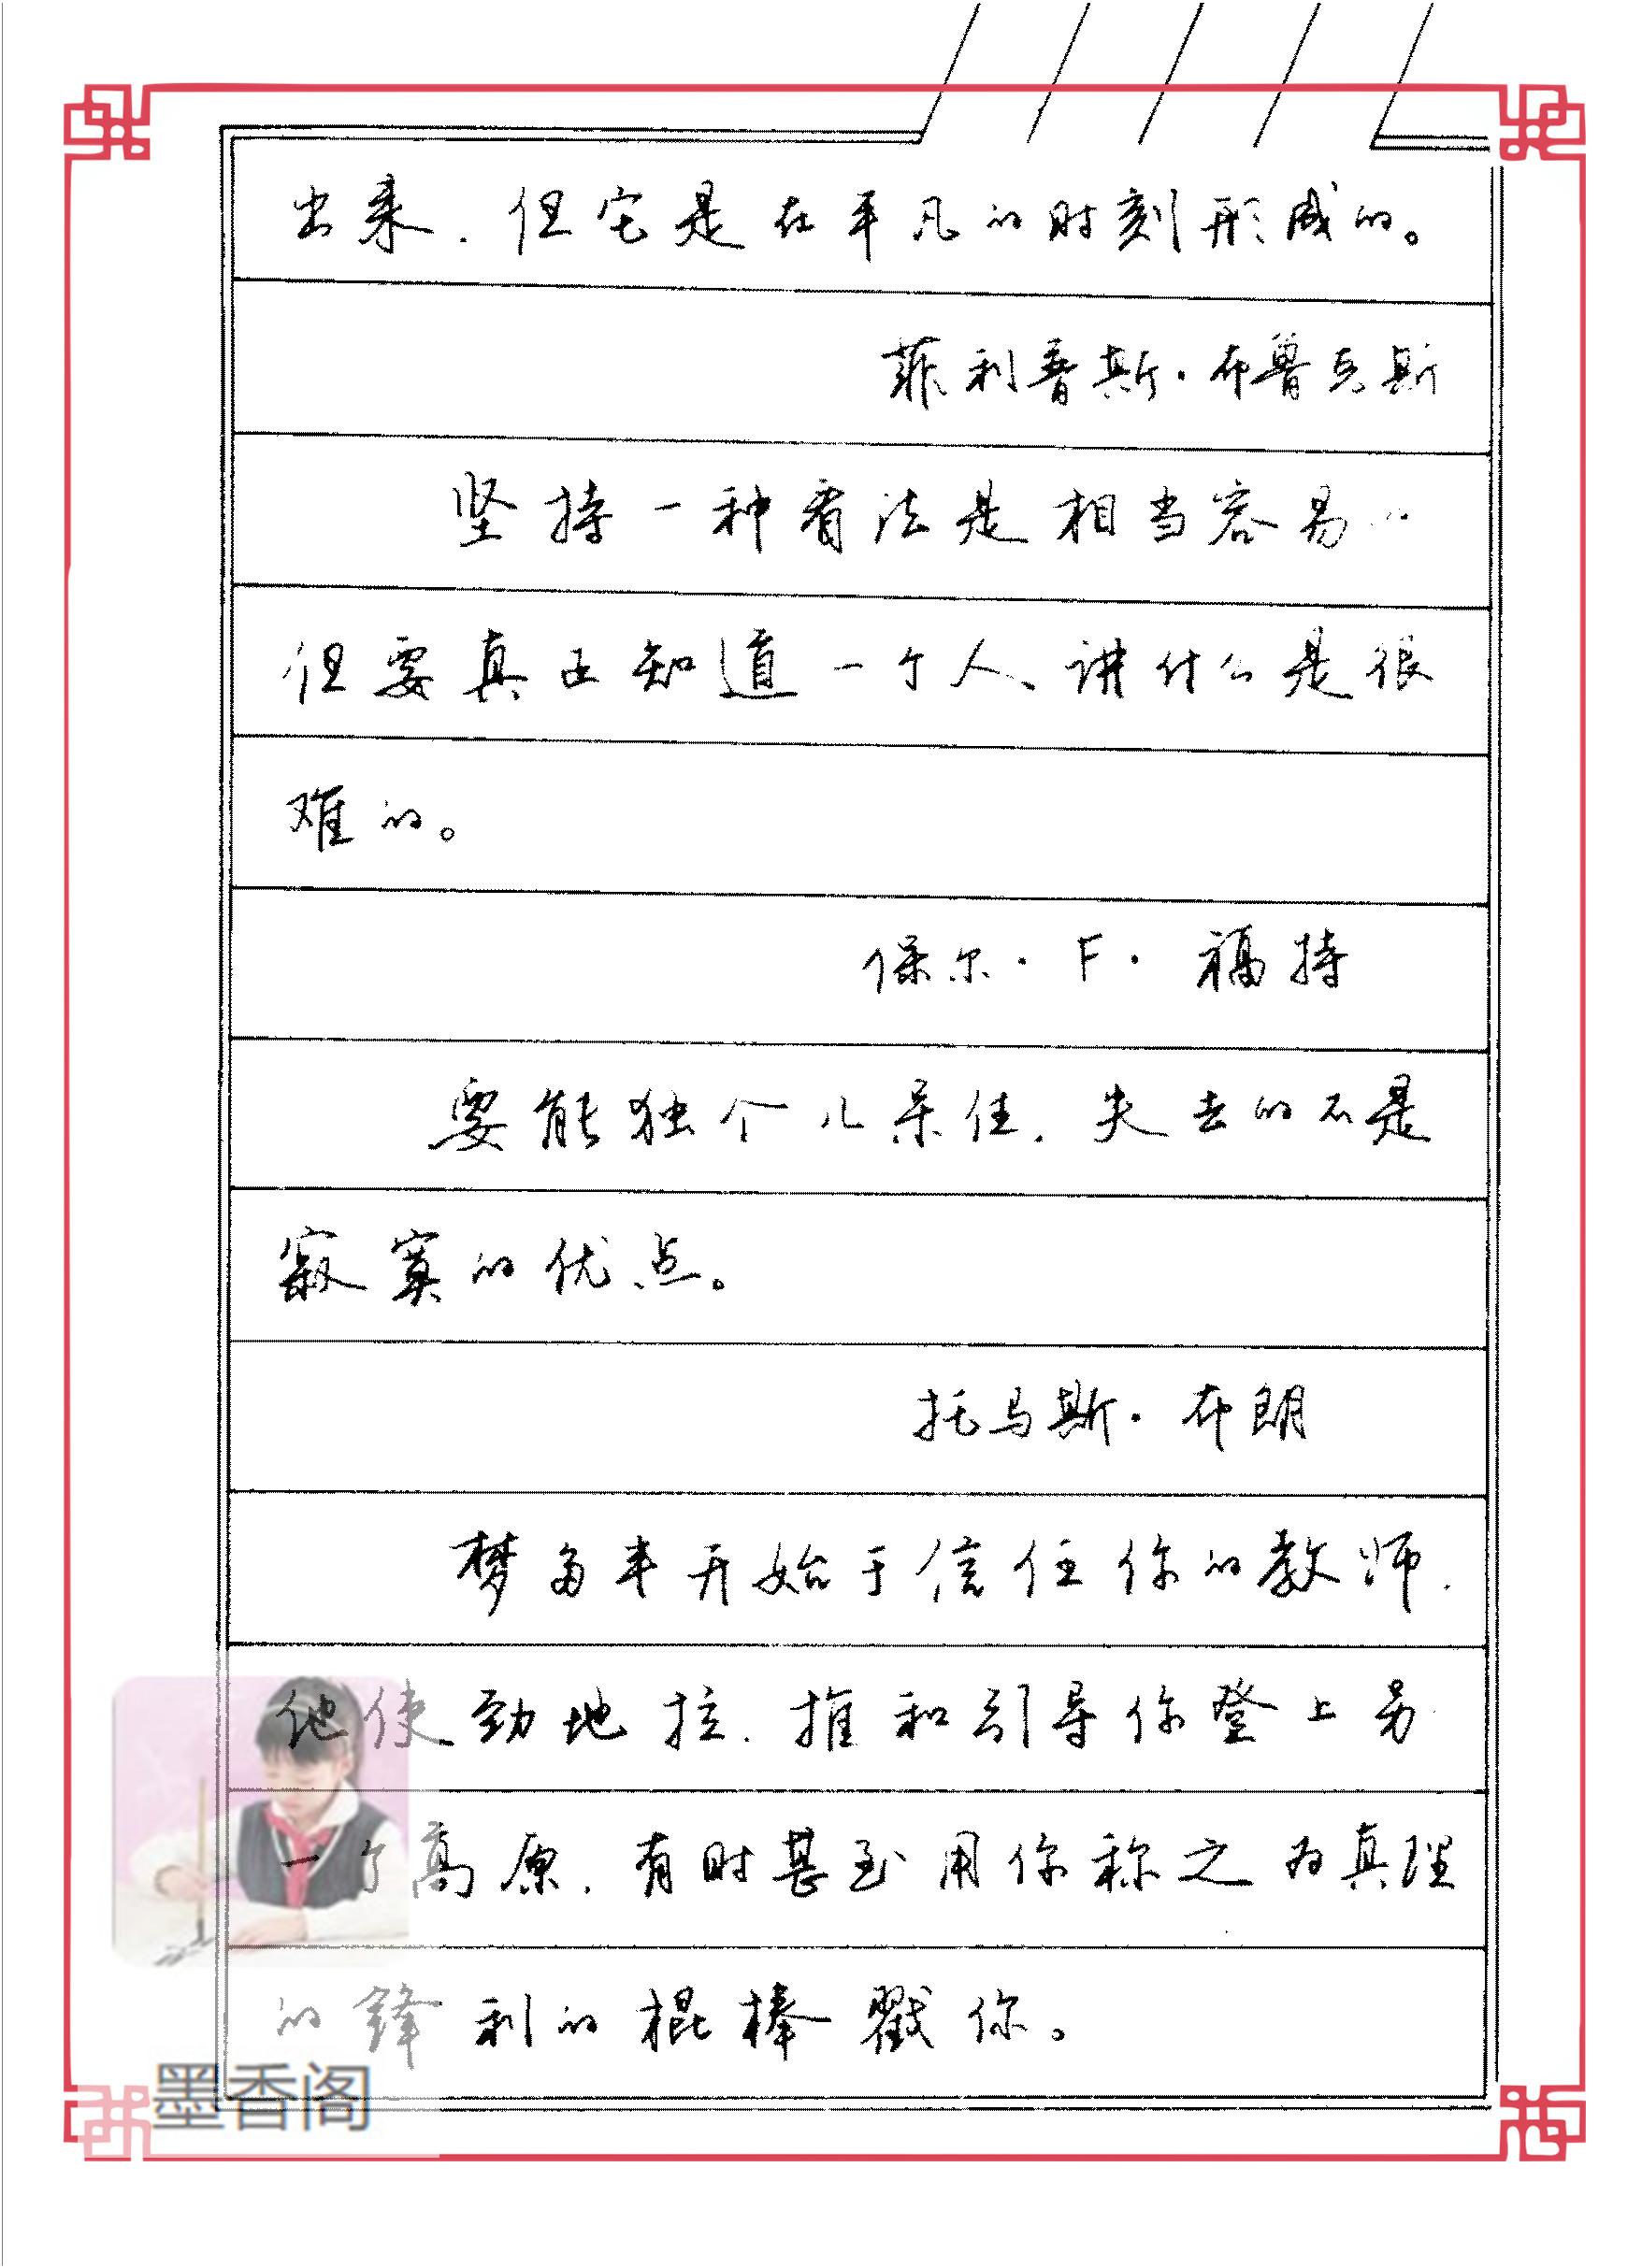 出来.但它是在平凡的时刻形成的。
菲利普斯·布鲁克斯
坚持一种看法是相当容易..
但要真正知道一个人、讲什么是很
难的。
保尔·F·福特
要能独个儿呆住.失去的不是
寂寞的优点。
托马斯·布朗
梦多半开始于信任你的教师.
他使劲地拉.推和引导你登上另
一个高原.有时甚至用你称之为真理
的锋利的棍棒戳你。
墨香阁